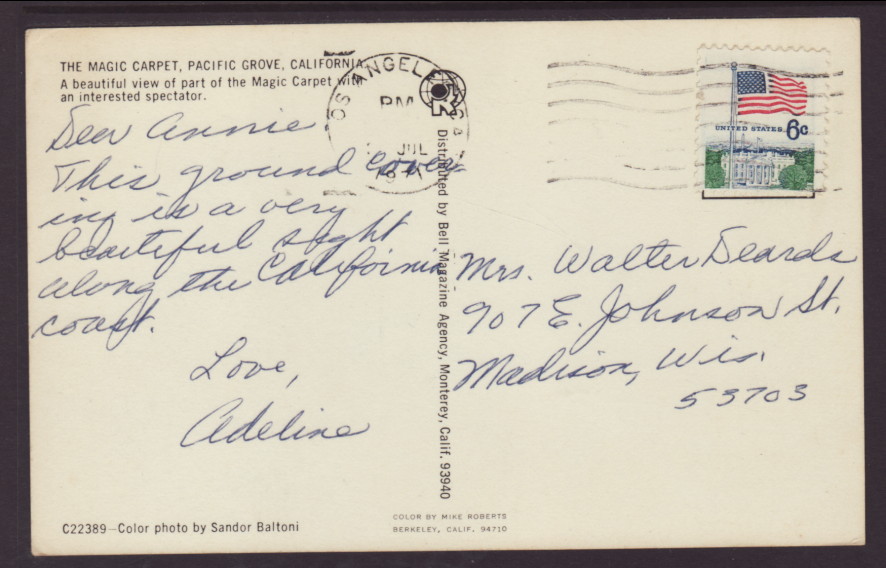 THE MAGIC CARPET, PACIFIC GROVE, CALIFORNIA
A beautiful view of part of the Magic Carpet with
an interested spectator.
LOS ANGELES, CA
PM
JUL
1971
UNITED STATES 6c
Dear Annie
This ground cover
ing is a very
beautiful sight
along the California
coast.
Love,
Adeline
Distributed by Bell Magazine Agency, Monterey, Calif. 93940
Mrs. Walter Deards
907 E. Johnson St.
Madison, Wis.
53703
C22389—Color photo by Sandor Baltoni
COLOR BY MIKE ROBERTS
BERKELEY, CALIF. 94710